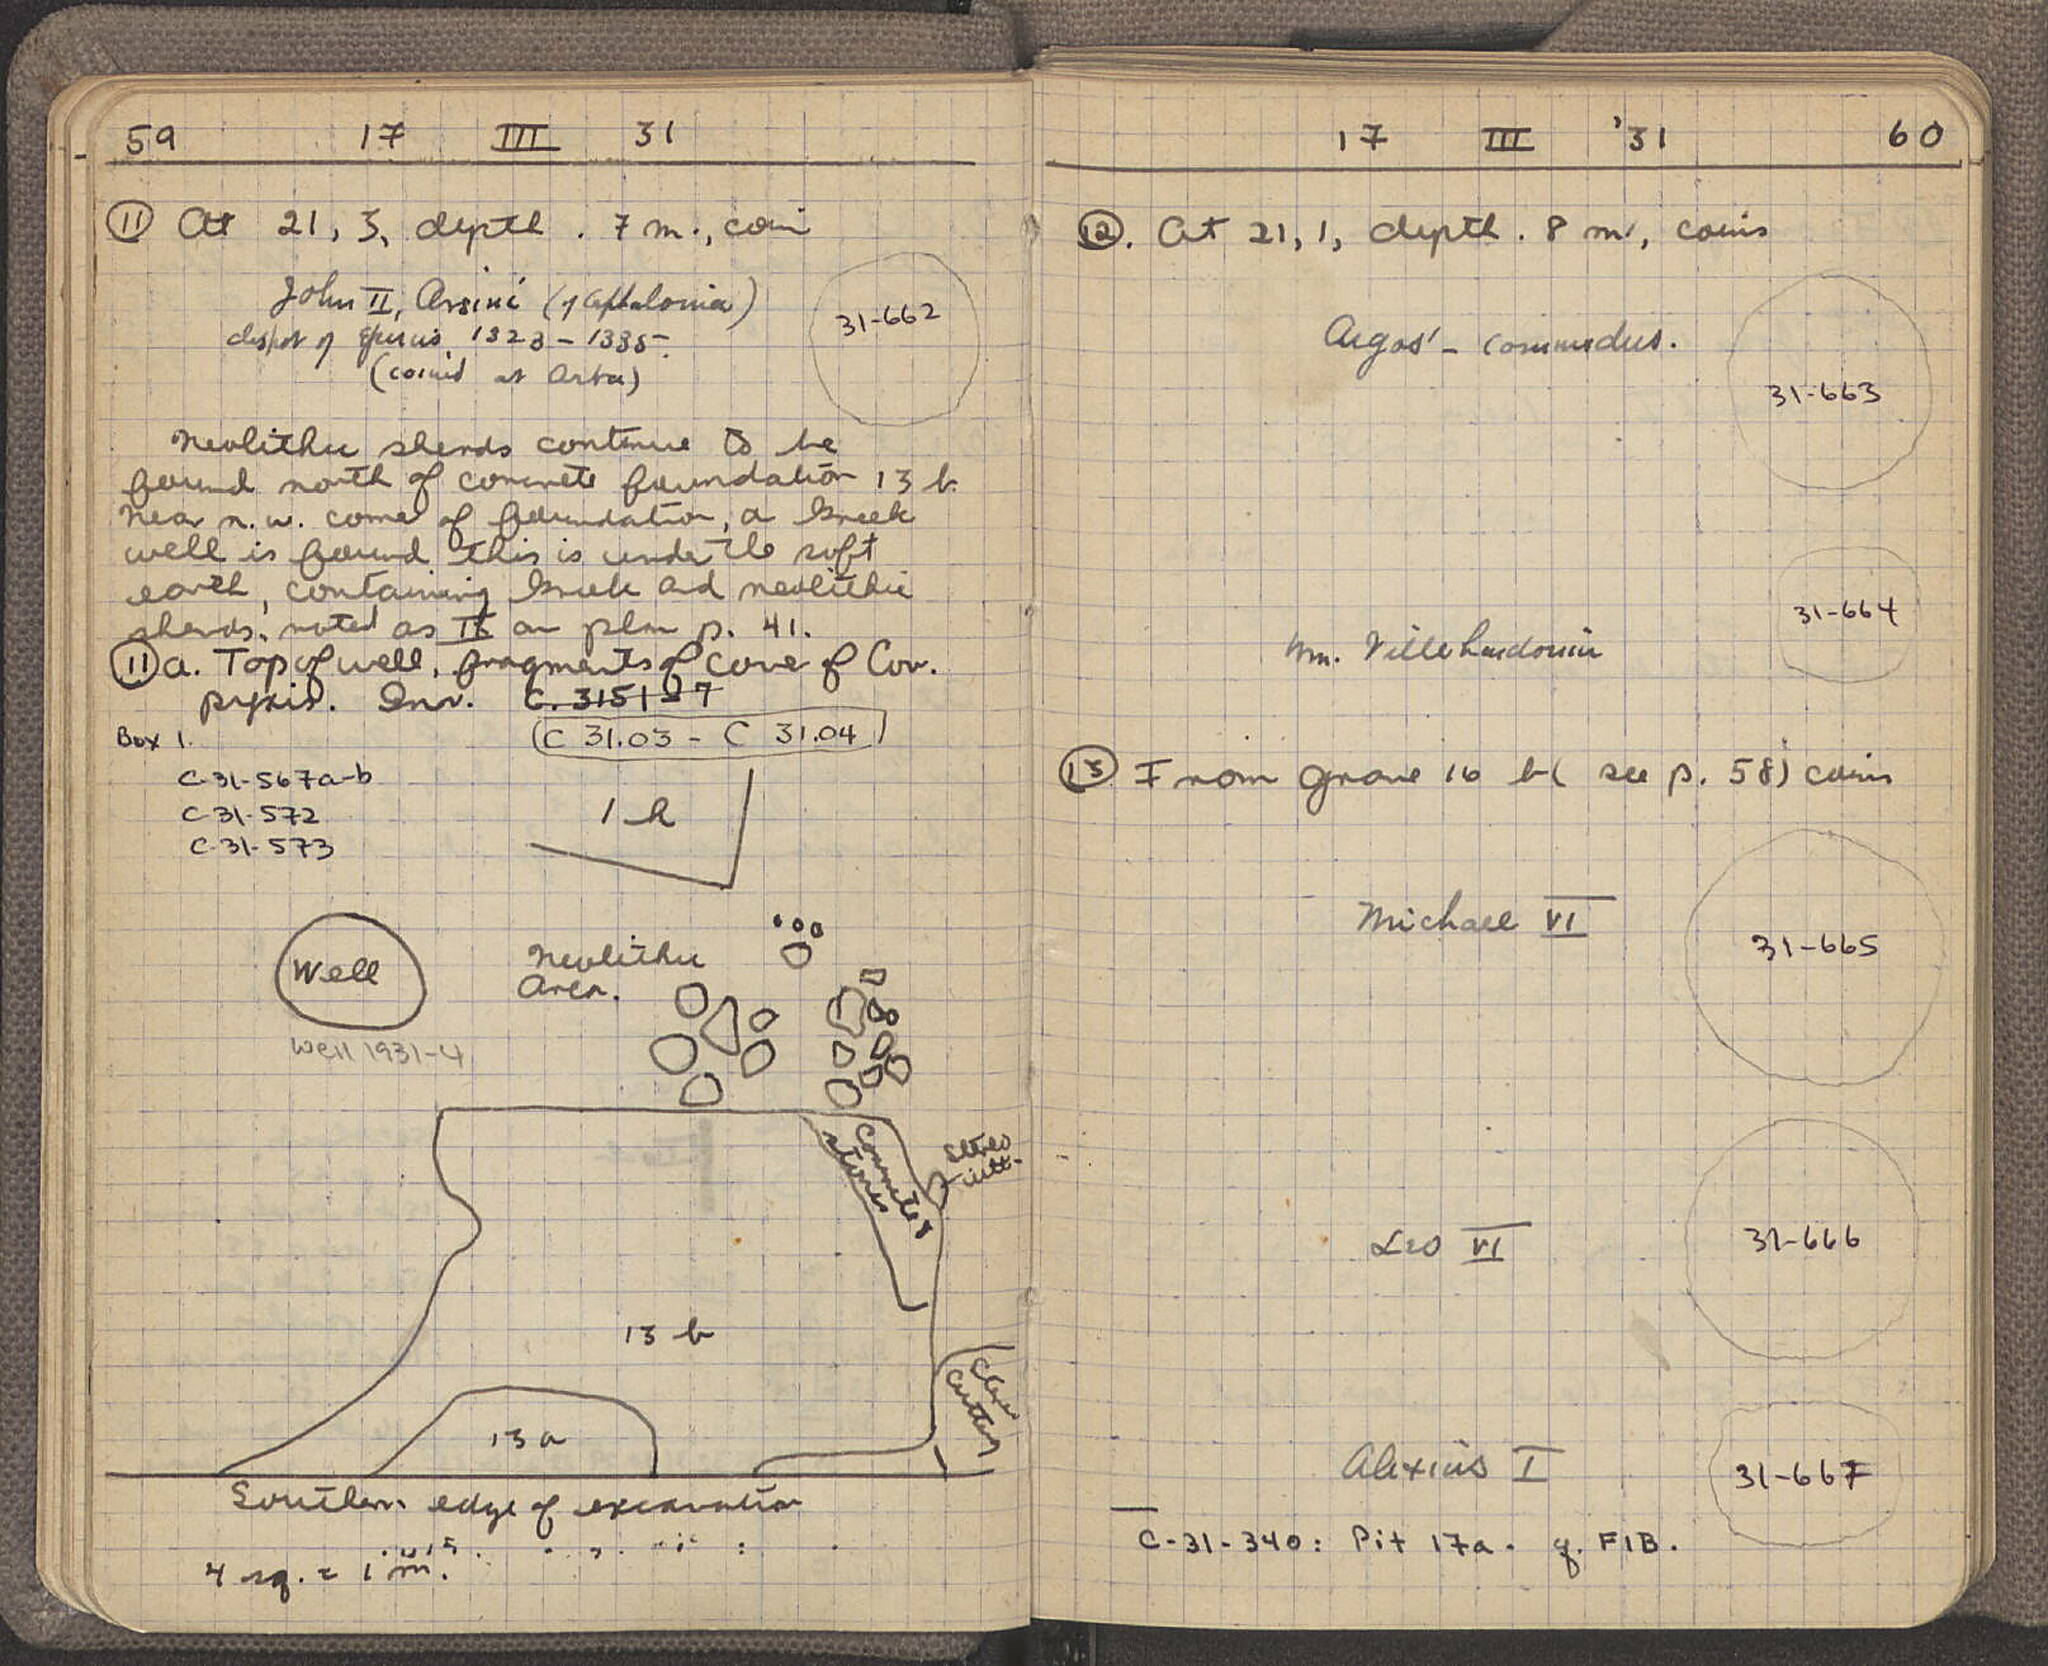 59 17 III 31
11 At 21, 3, depth .7 m., coin
John II, Orsini (of Cephalonia)
despot of Epirus 1323-1335.
(coined at Arta)
31-662
Neolithic sherds continue to be
found north of concrete foundation 13 b.
Near n.w. corner of foundation, a Greek
well is found this is under the soft
earth, containing Greek and neolithic
sherds, noted as II on plan p. 41.
11 a. Top of well, fragments of cover of Cor.
pyxis. Inv. C. 3151-7
Box 1. (C 31.03 - C 31.04)
C-31-567a-b
C-31-572
C-31-573
1 h
Well
Neolithic
Area.
Well 1931-4
Concrete &
stones
Stereo
cutt-
13 b
Clay
Cutting
13 a
Southern edge of excavation
4 sq. = 1 m.
17 III '31 60
12. At 21, 1, depth .8 m., coins
Argos - Commodus.
31-663
31-664
Wm. Villehardouin
13 From grave 16 b ( see p. 58) coins
Michael VI
31-665
Leo VI
31-666
Alexius I
31-667
C-31-340: Pit 17a. g. FIB.